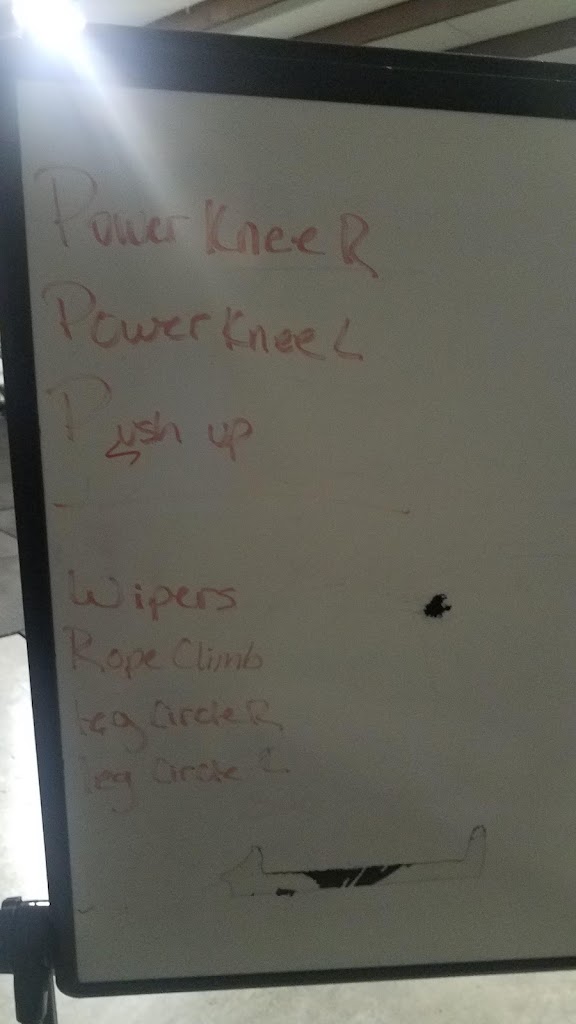 Power Knee R
Power Knee L
Push up
Wipers
Rope Climb
leg Circle R
leg Circle L